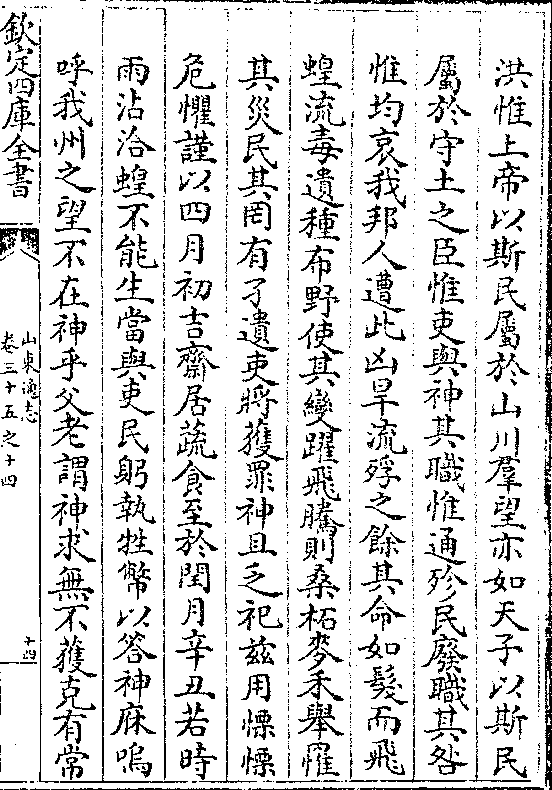 洪惟上帝以斯民屬於山川羣望亦如天子以斯民
屬於守土之臣惟吏與神其職惟通殄民廢職其咎
惟均哀我邦人遭此凶旱流殍之餘其命如髮而飛
蝗流毒遺種布野使其變躍飛騰則桑柘麥禾舉罹
其災民其罔有孑遺吏將獲罪神且乏祀兹用慄慄
危懼謹以四月初吉齋居蔬食至於閏月辛丑若時
雨沾洽蝗不能生當與吏民躬執牲幣以答神庥嗚
呼我州之望不在神乎父老謂神求無不獲克有常
欽定四庫全書
山東通志
卷三十五之十四
十四